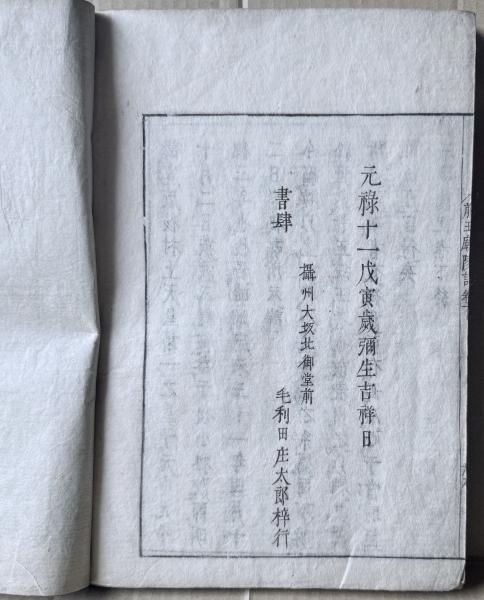 元祿十一戊寅歳彌生吉祥日
書肆
攝州大坂北御堂前
毛利田庄太郎梓行
前王廟陵記卷